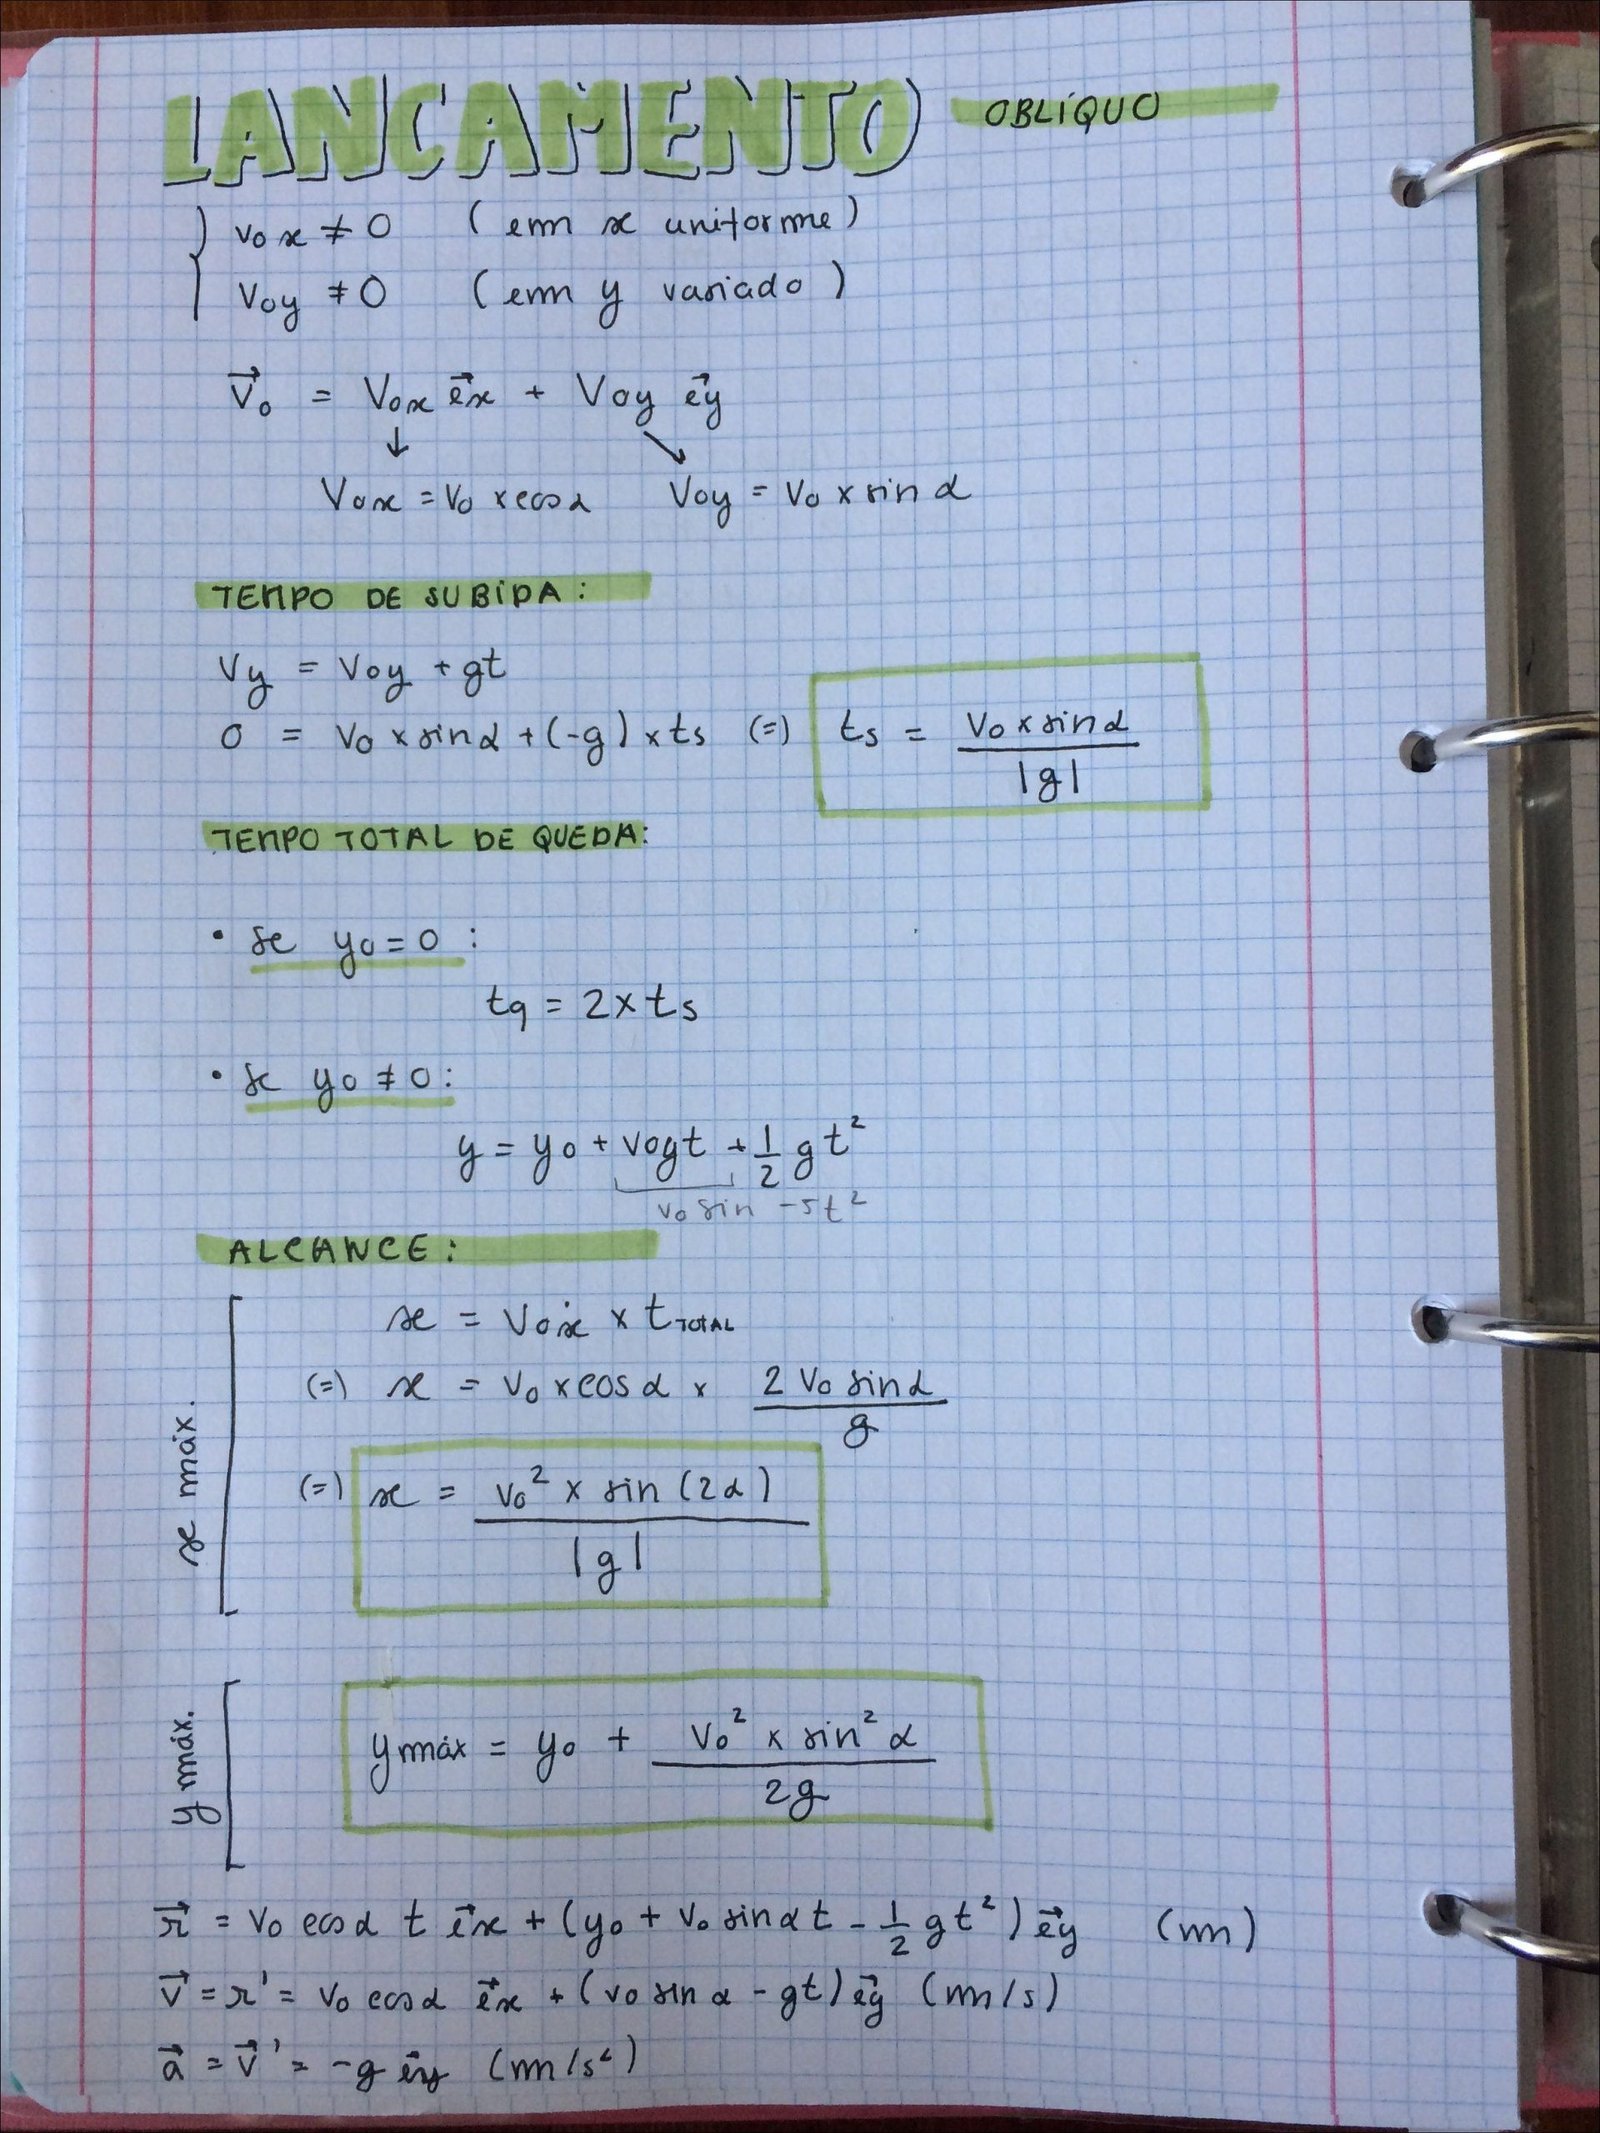 LANCAMENTO OBLÍQUO
v₀x ≠ 0 (em x uniforme)
v₀y ≠ 0 (em y variado)
v⃗₀ = V₀x e⃗x + V₀y e⃗y
↓ ↘
V₀x = V₀ × cos α V₀y = V₀ × sin α
TEMPO DE SUBIDA:
Vy = V₀y + gt
0 = V₀ × sin α + (-g) × ts (=) ts = V₀ × sin α / |g|
TEMPO TOTAL DE QUEDA:
• se y₀ = 0 :
tq = 2 × ts
• se y₀ ≠ 0 :
y = y₀ + v₀yt + 1/2 gt²
v₀ sin -5t²
ALCANCE:
x = V₀x × t TOTAL
(=) x = V₀ × cos α × 2 V₀ sin α / g
(=) x = V₀² × sin (2α) / |g|
x máx.
ymáx = y₀ + V₀² × sin² α / 2g
y máx.
r⃗ = V₀ cos α t e⃗x + (y₀ + V₀ sin α t - 1/2 gt²) e⃗y (m)
v⃗ = r' = V₀ cos α e⃗x + (v₀ sin α - gt) e⃗y (m/s)
a⃗ = v⃗' = -g e⃗y (m/s²)